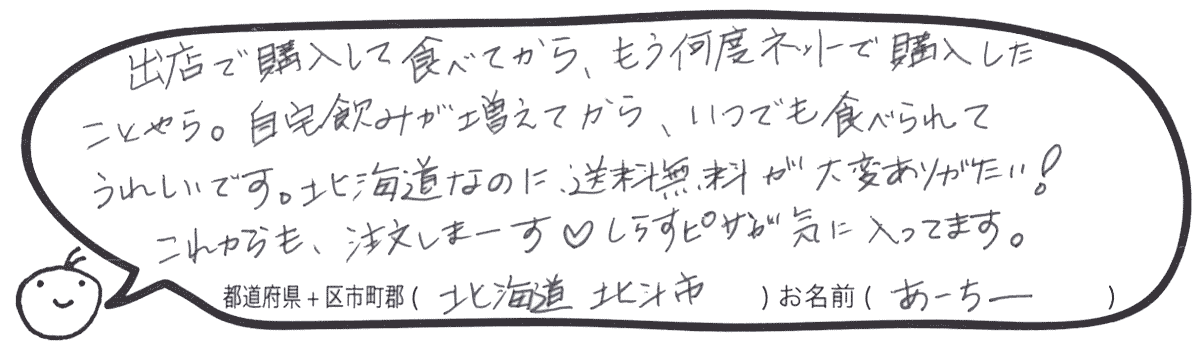 出店で購入して食べてから、もう何度ネットで購入した
ことやら。自宅飲みが増えてから、いつでも食べられて
うれしいです。北海道なのに送料無料が大変ありがたい!
これからも、注文しまーす♡しらすピザが気に入ってます。
都道府県+区市町郡(北海道 北斗市 )お名前(あーちー )